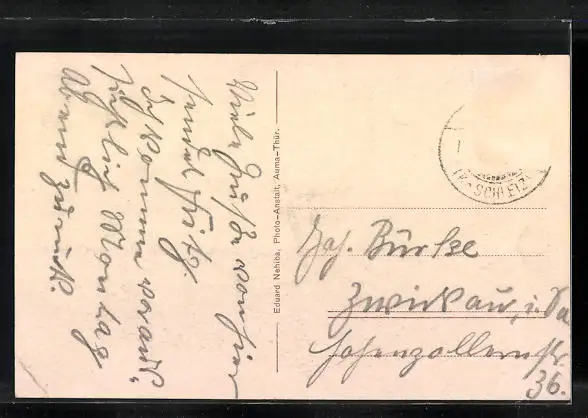 Viele Grüße von hier
sendet Fritz
Ich komme voraus-
sichtlich Montag
Abend zurück.
Eduard Nehiba, Photo-Anstalt, Auma-Thür.
(Kr. SCHLEIZ)
Bürke
Zwickau, i. Sa
Hohenzollernstr.
36.